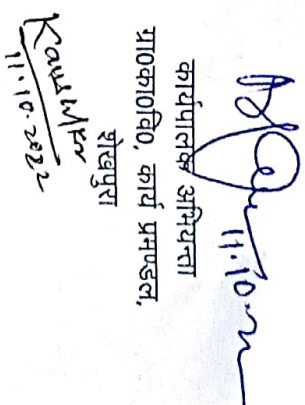 11.10.22
कार्यपालक अभियन्ता
ग्रा०का०वि०, कार्य प्रमण्डल,
शेखपुरा
11.10.2022